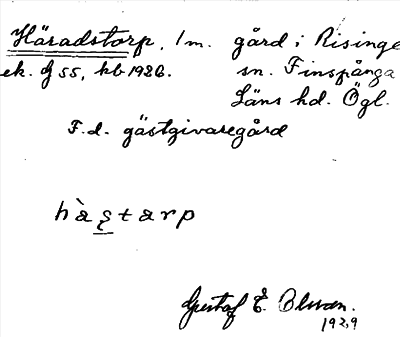 Häradstorp, 1 m. gård i Risinge
ek. G 55, kb 1926. sn. Finspånga
Läns hd. Ögl.
F.d. gästgivaregård
hàs̨tarp
Gustaf E. Olsson.
1929